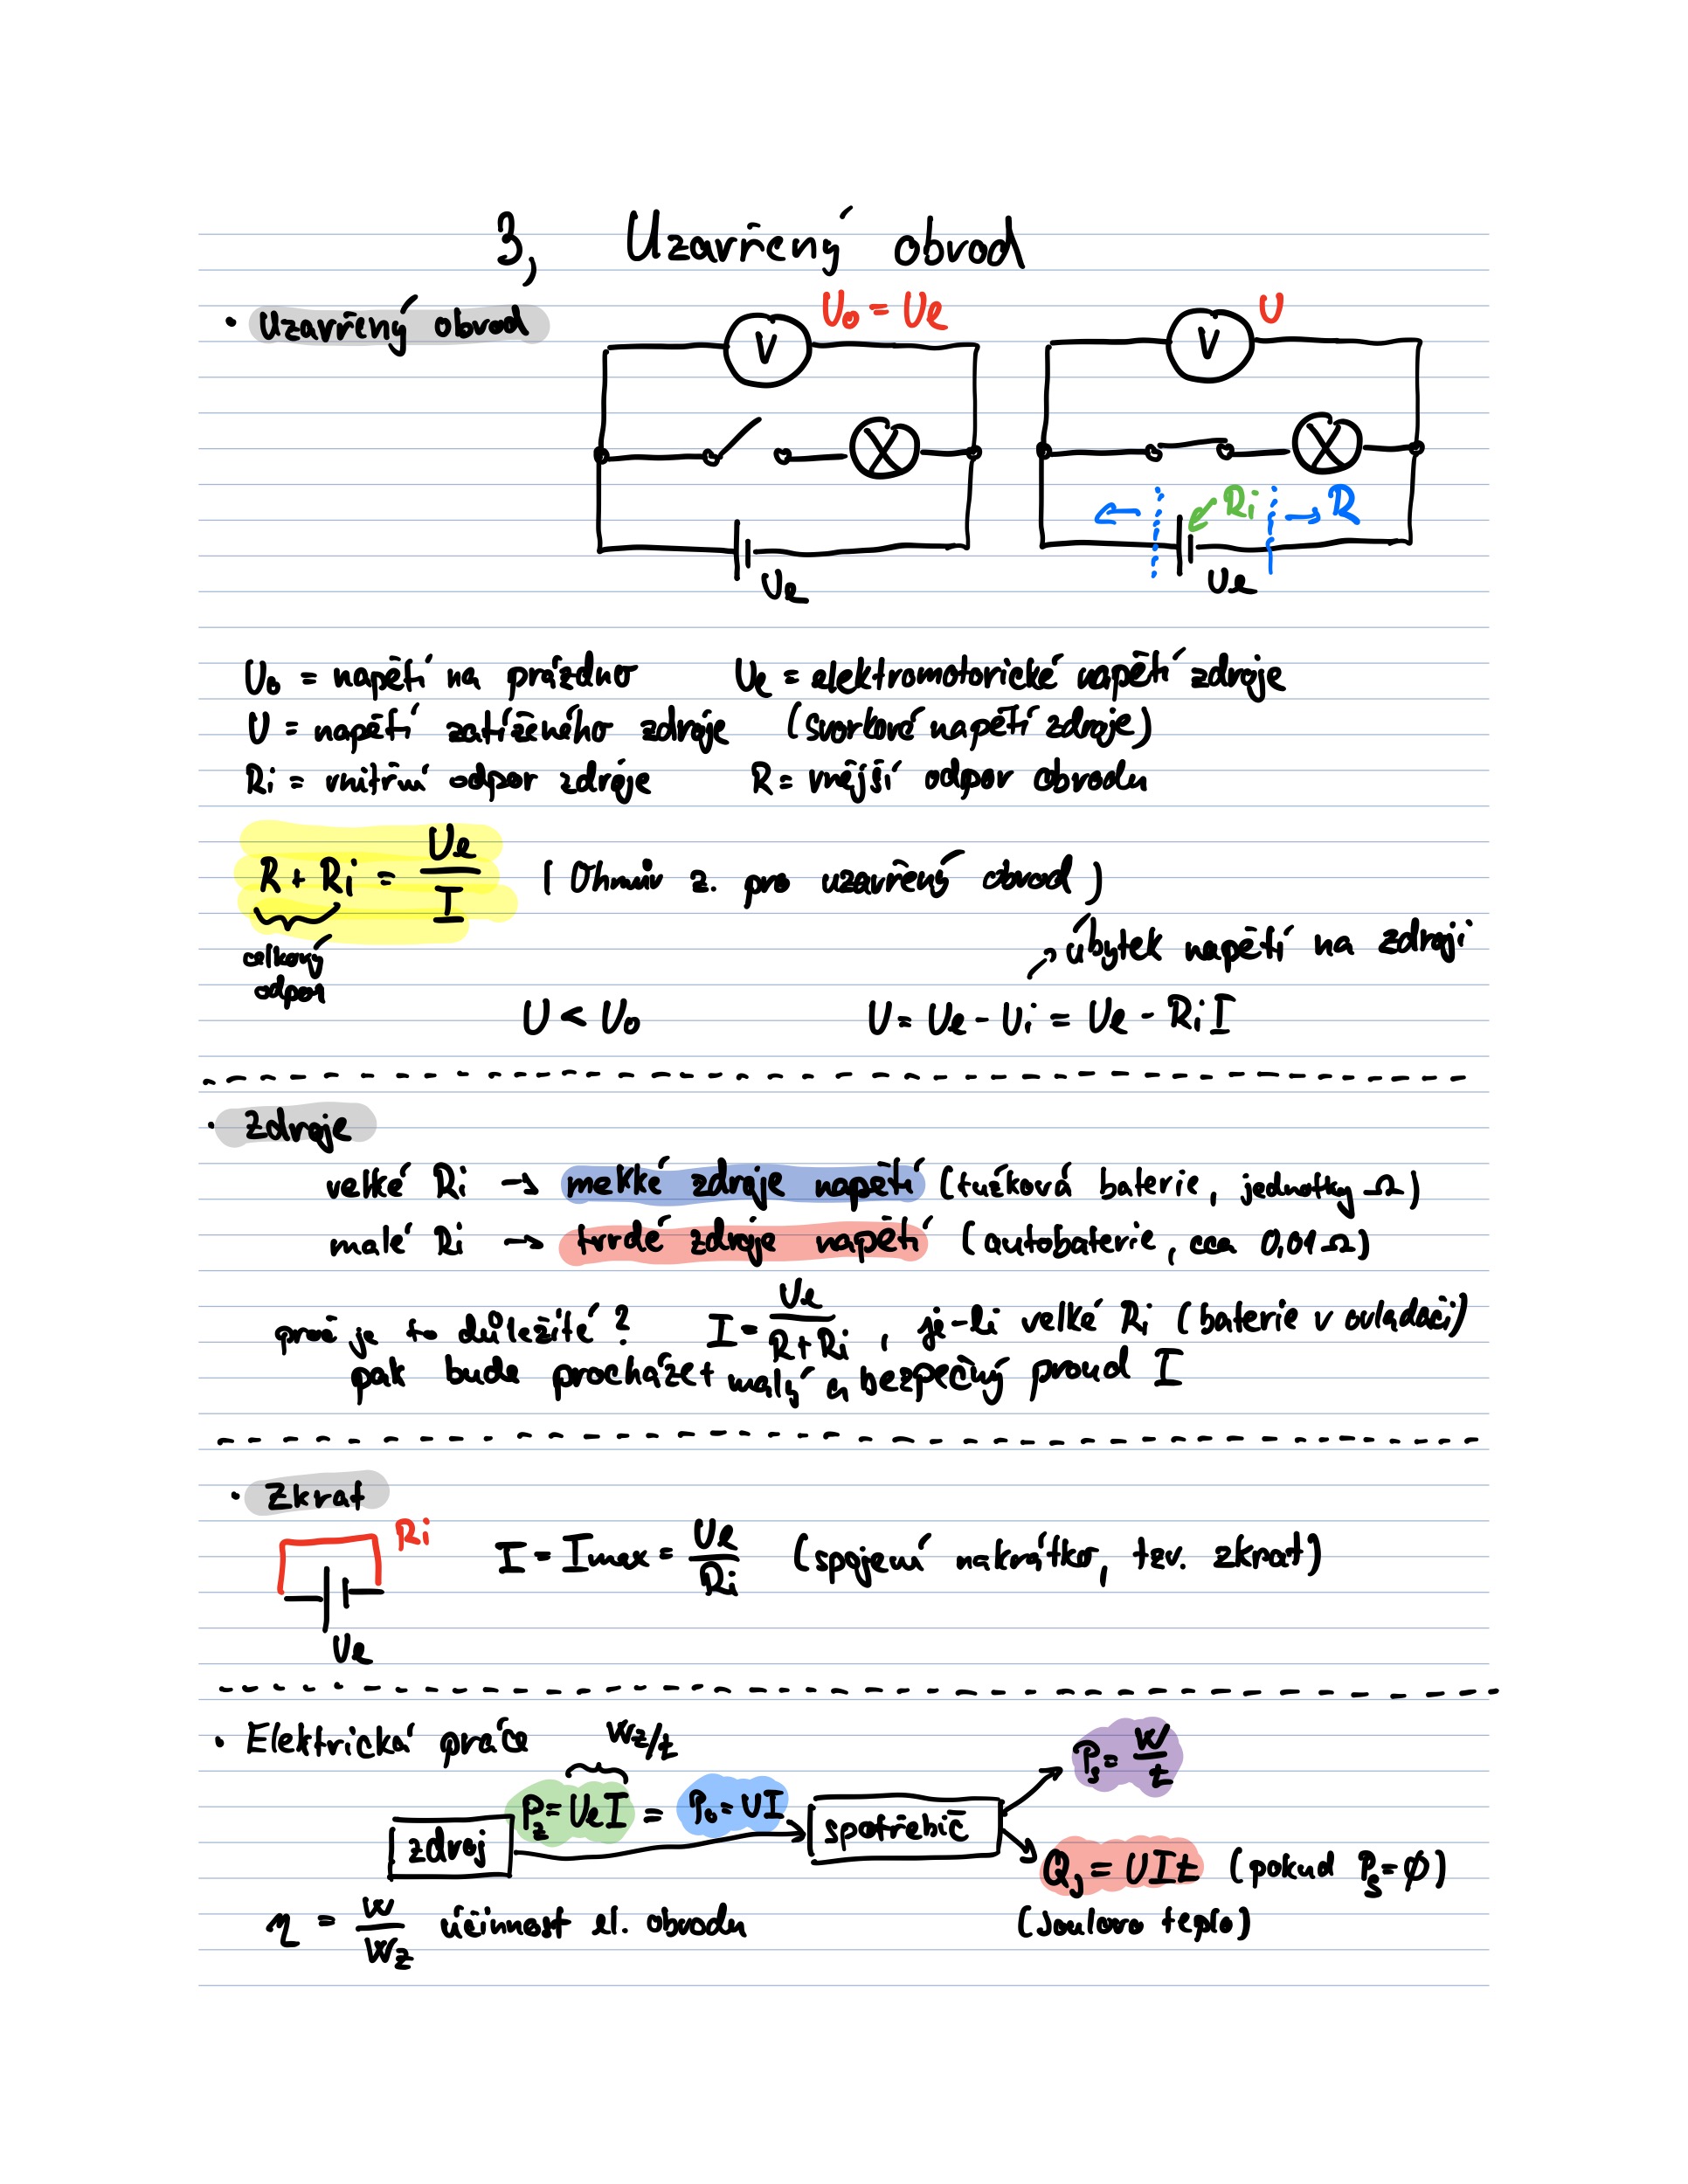 3, Uzavřený obvod
• Uzavřený obvod
U₀ = Ue
U
V
V
Ri
R
Ue
Ue
U₀ = napětí na prázdno Ue = elektromotorické napětí zdroje
U = napětí zatíženého zdroje (svorkové napětí zdroje)
Ri = vnitřní odpor zdroje R = vnější odpor obvodu
R + Ri = Ue/I (Ohmův z. pro uzavřený obvod)
celkový odpor
úbytek napětí na zdroji
U < U₀ U = Ue - Ui = Ue - RiI
• Zdroje
velké Ri → mekké zdroje napětí (tužková baterie, jednotky Ω)
malé Ri → tvrdé zdroje napětí (autobaterie, cca 0,01 Ω)
proč je to důležité? I = Ue/R+Ri , je-li velké Ri (baterie v ovladači)
pak bude procházet malý a bezpečný proud I
• Zkrat
Ri
I = Imax = Ue/Ri (spojení nakrátko, tzv. zkrat)
Ue
• Elektrická práce Wz/t
Ps = W/t
Pz = UeI = P₀ = UI
zdroj
spotřebič
QJ = UIt (pokud Ps = ∅)
η = W/Wz účinnost el. obvodu (Joulovo teplo)